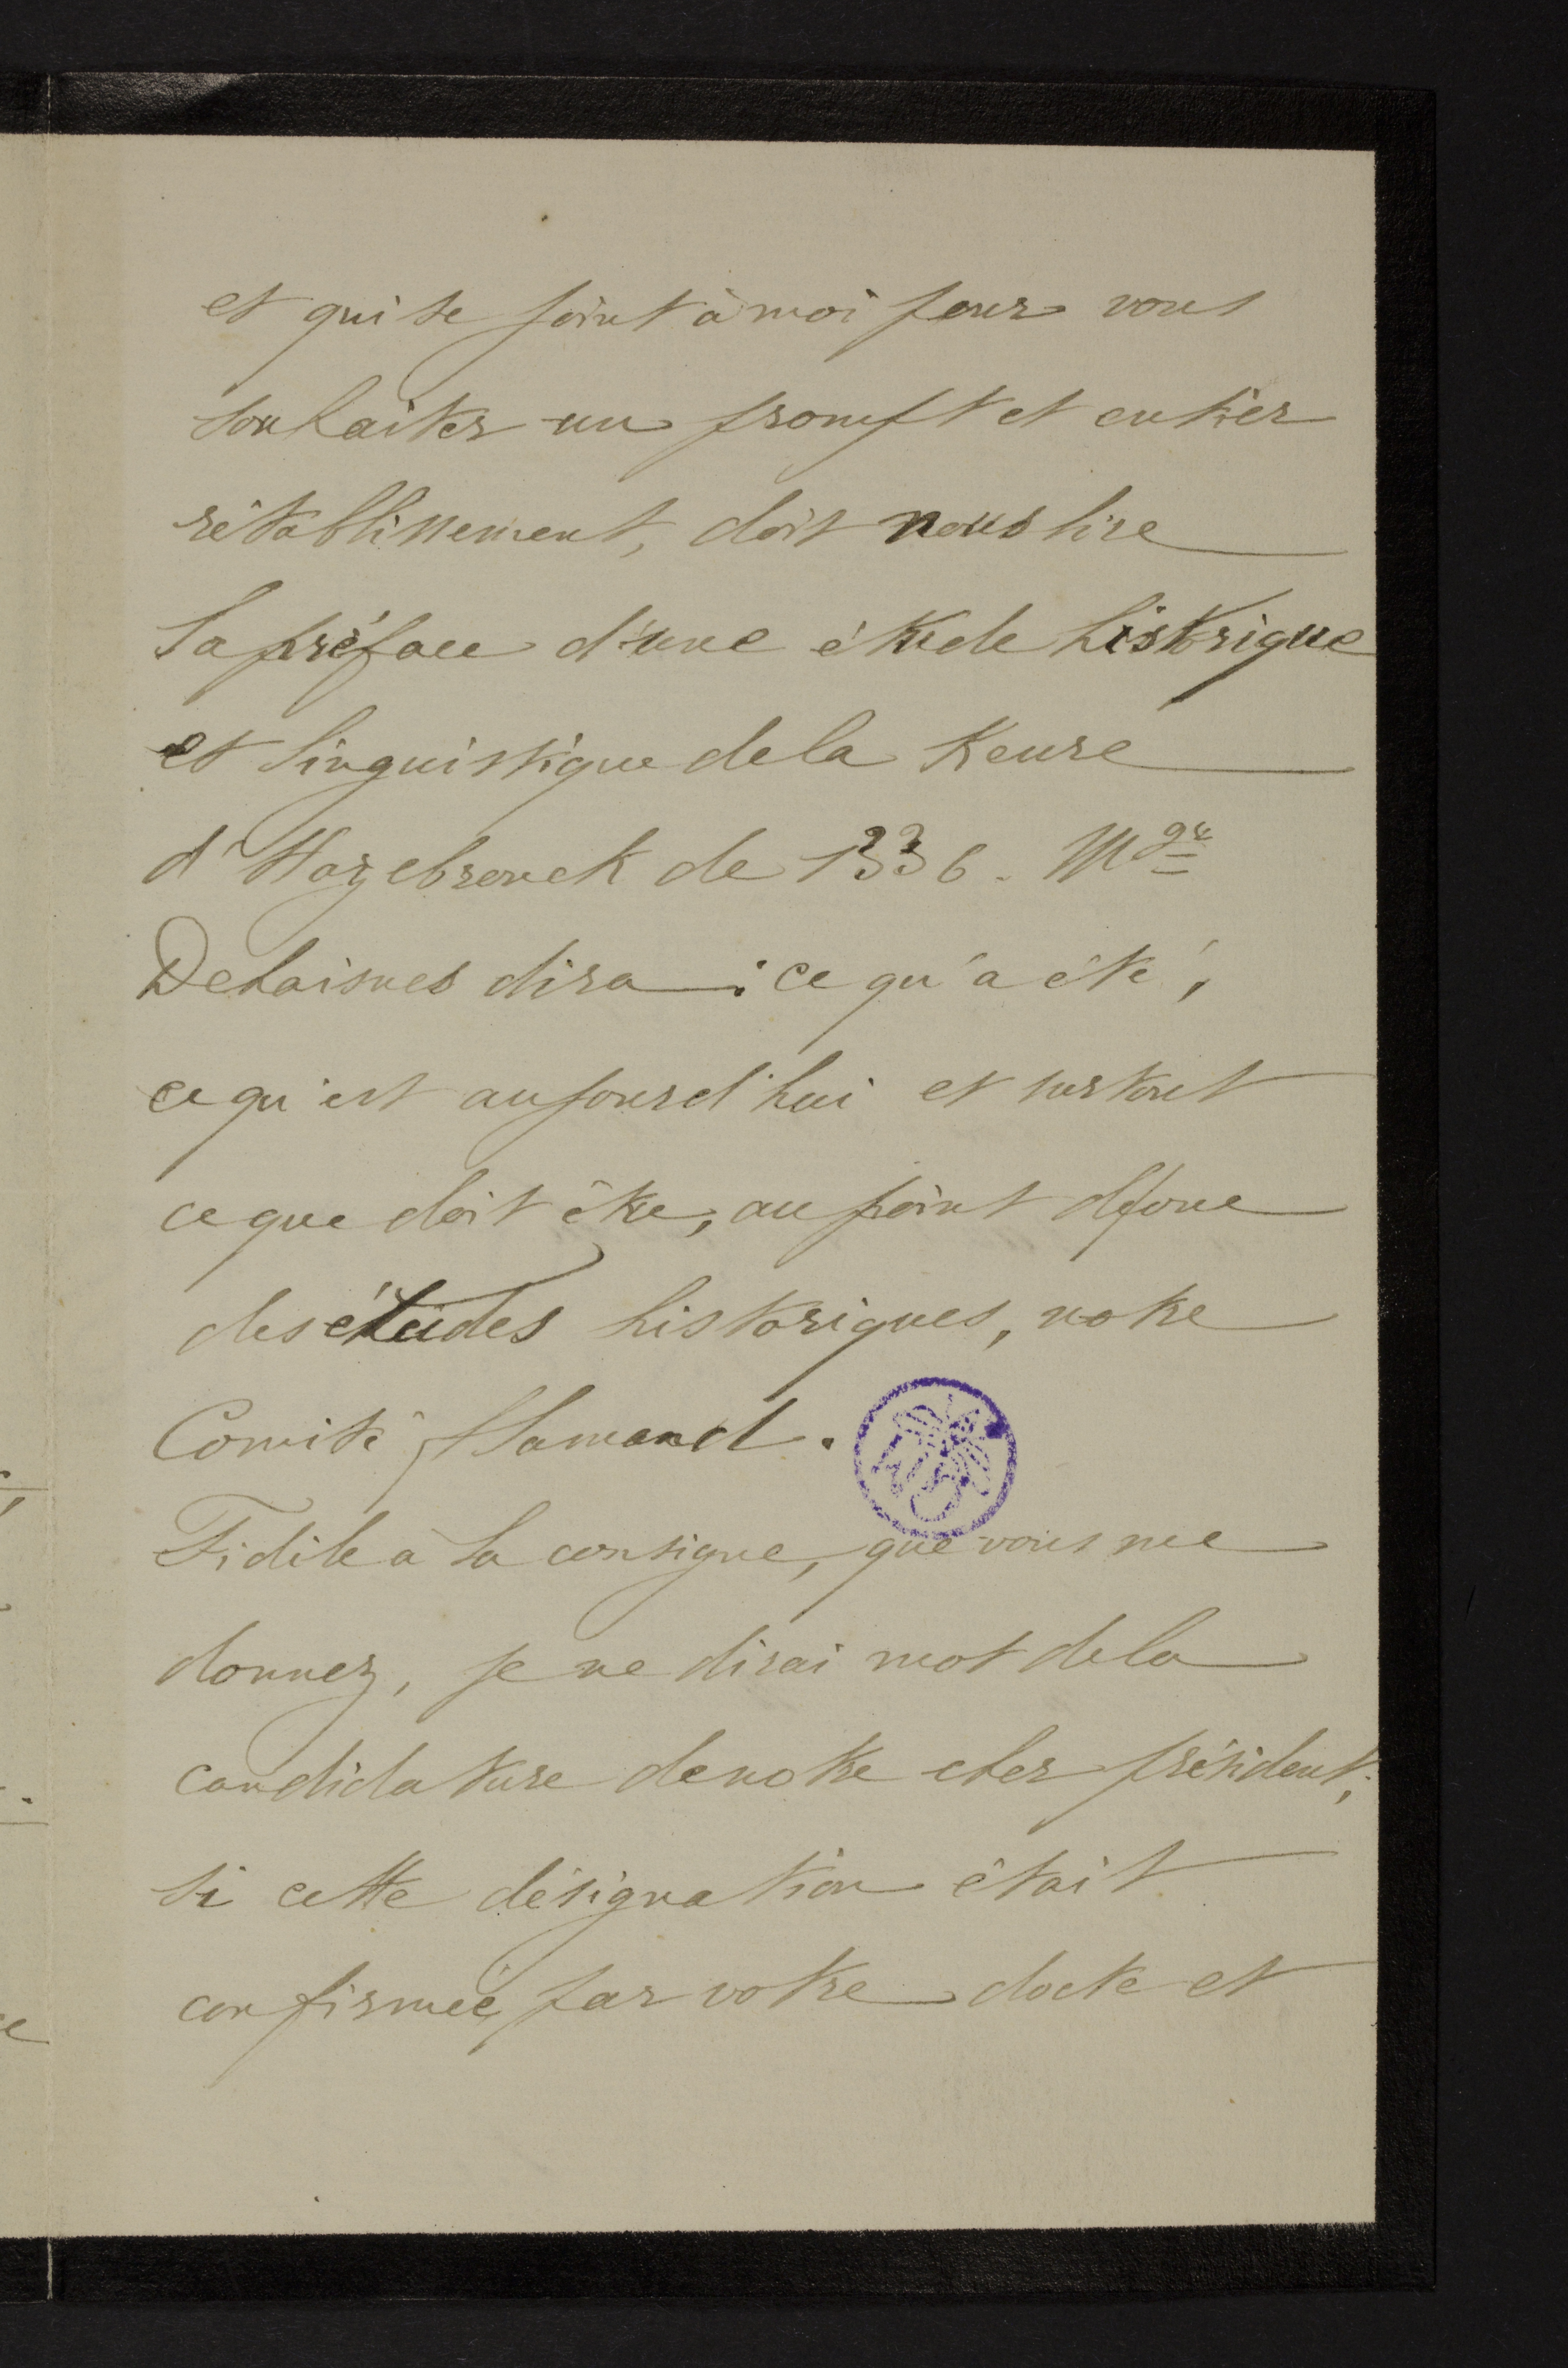 et qui se joint à moi pour vous
souhaiter un prompt et entier
rétablissement, doit nous lire
la préface d'une étude historique
et linguistique de la Keure
d'Hazebrouck de 1336. Mgr
Dehaisnes dira : ce qu'a été,
ce qu'est aujourd'hui et surtout
ce que doit être, au point de vue
des études historiques, notre
Comité flamand.
Fidèle à la consigne, que vous me
donnez, je ne dirai mot de la
candidature de notre cher président;
si cette désignation était
confirmée, par votre docte et